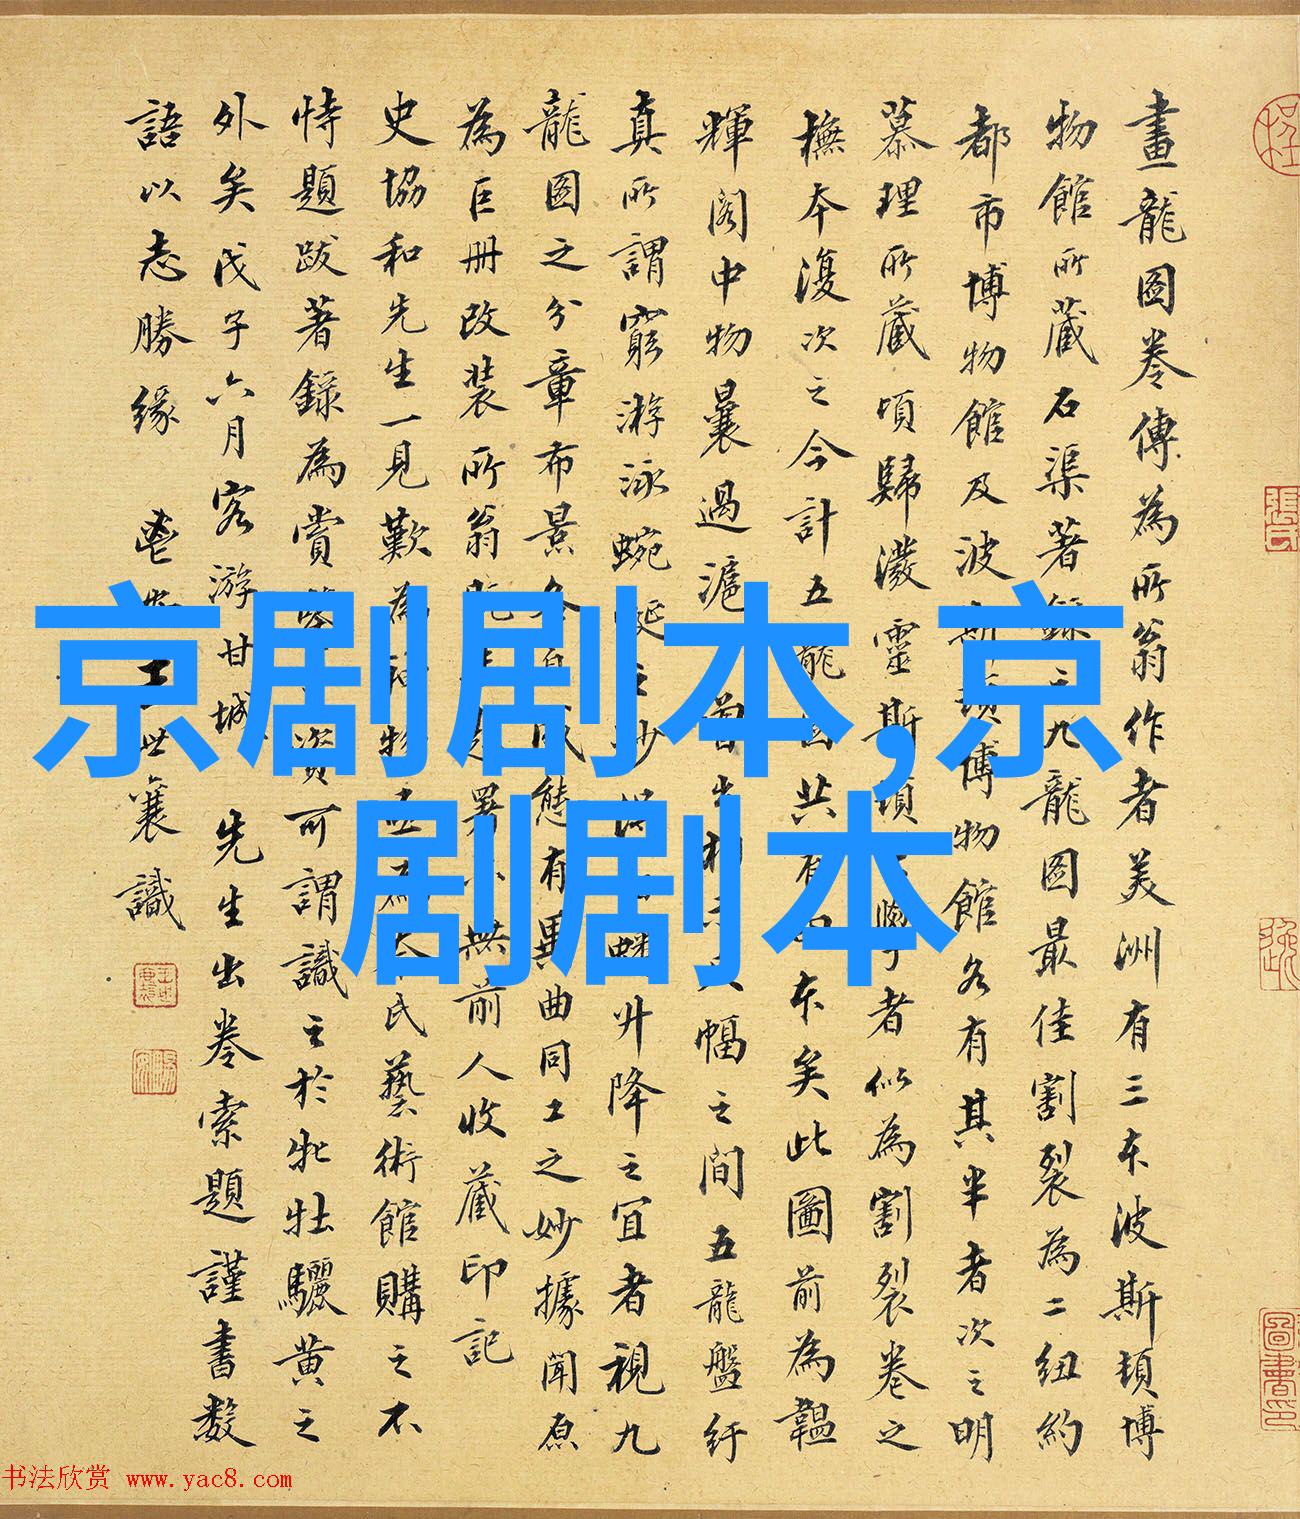 京剧剧本,京
剧剧本
畫龍圖卷傳為所翁作者美洲有三本波斯頓博
物館所藏石渠著錄之九龍圖最佳割裂為二紐約
都市博物館及波斯頓博物館各有其半者次之明
慕理所藏頃歸 靈斯頓 學者似為割裂卷之
撫本復次之今計五龍圖共有四本矣此圖前為韞
輝閣中物曩過滬曾出相示 幅之間五龍盤紆
真所謂窮游泳蜿蜒之妙得 蟠升降之宜者視九
龍圖之分章布景各 態有異曲同工之妙據聞原
為巨冊改裝所翁 署 無前人收藏印記
史協和先生一見歎為神物亟為本氏藝術館購之不
恃題跋著錄為賞鑒 資可謂識之於牝牡驪黃之
外矣戊子六月客游甘城 先生出卷索題謹書數
語以志勝緣 鬯安王世襄識
书法欣赏 www.yac8.com